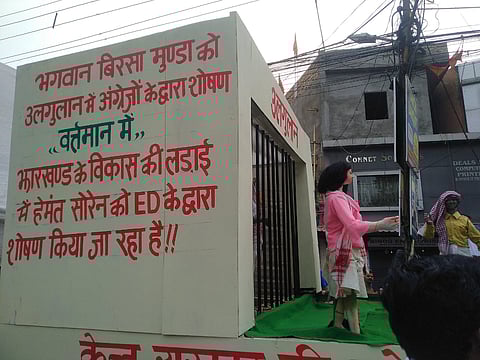 भगवान बिरसा मुण्डा को
उलगुलान में अंग्रेजों के द्वारा शोषण
,,वर्तमान में,,
झारखण्ड के विकास की लडाई
में हेमंत सोरेन को ED के द्वारा
शोषण किया जा रहा है!!
उलगुलान
COMNET
DEALS
केन्द्र सरकार की